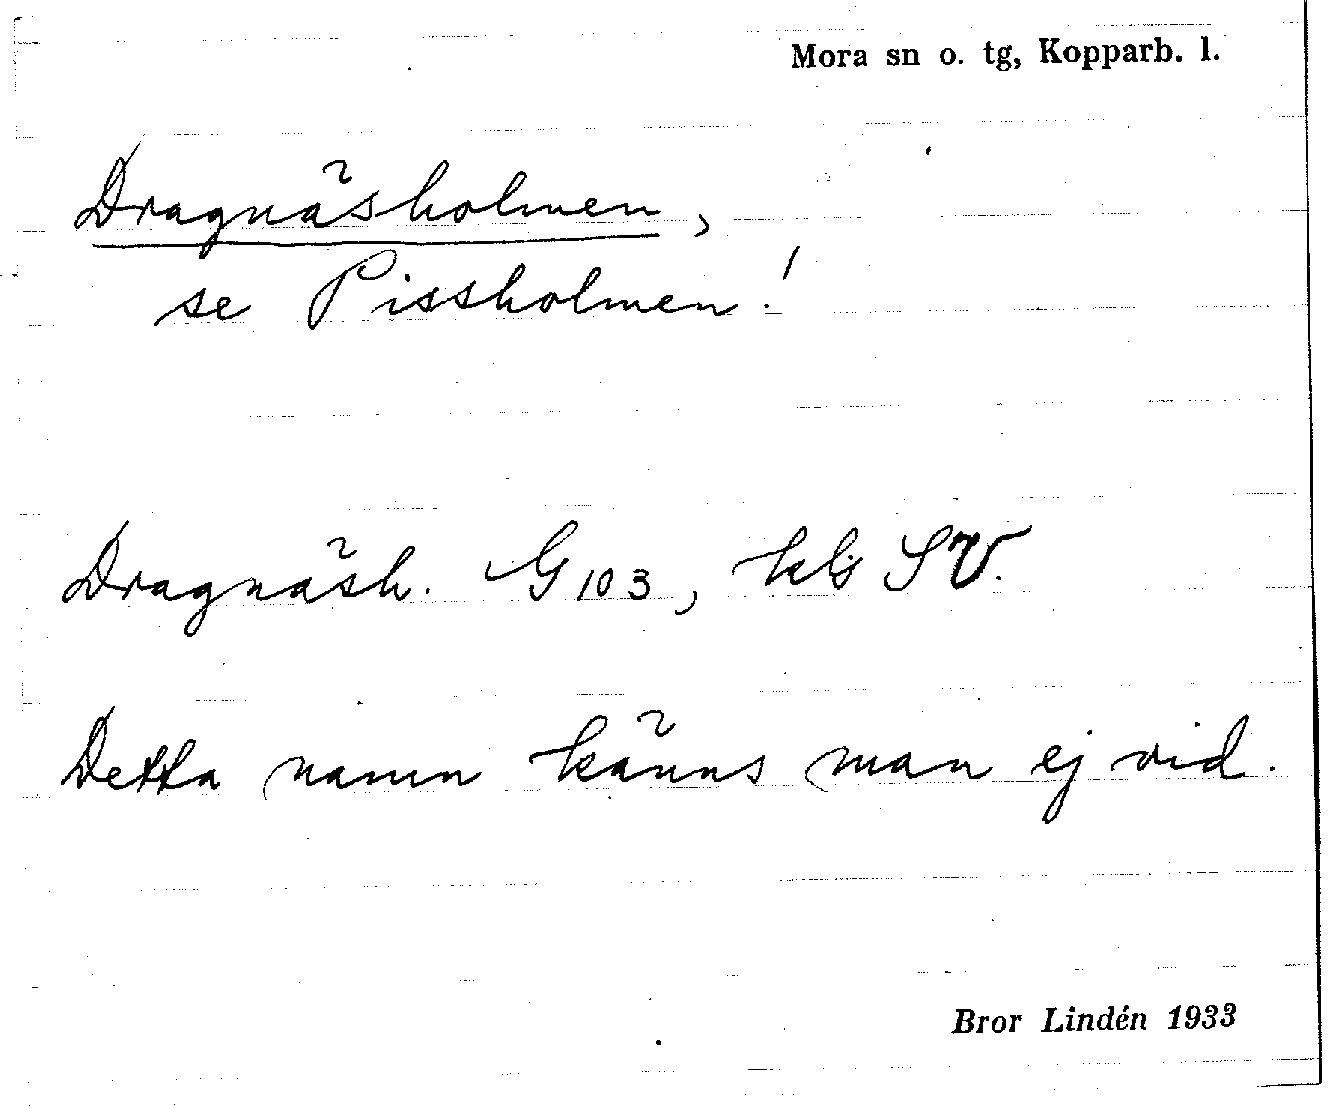 Mora sn o. tg, Kopparb. l.
Dragnäsholmen,
se Pissholmen!
Dragnäsh. G 103, kbs SV.
Detta namn känns man ej vid.
Bror Lindén 1933